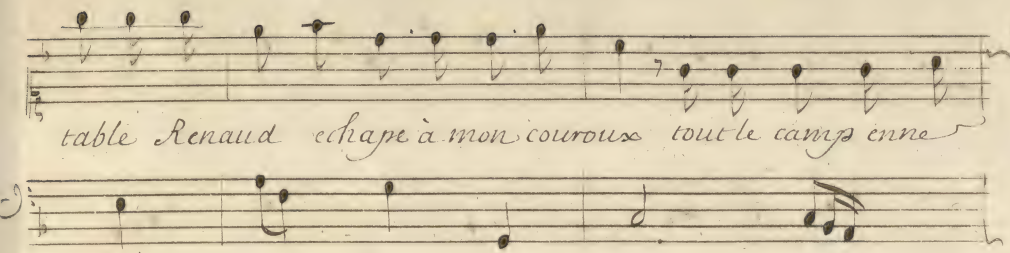 table Renaud echape à mon couroux tout le camp enne